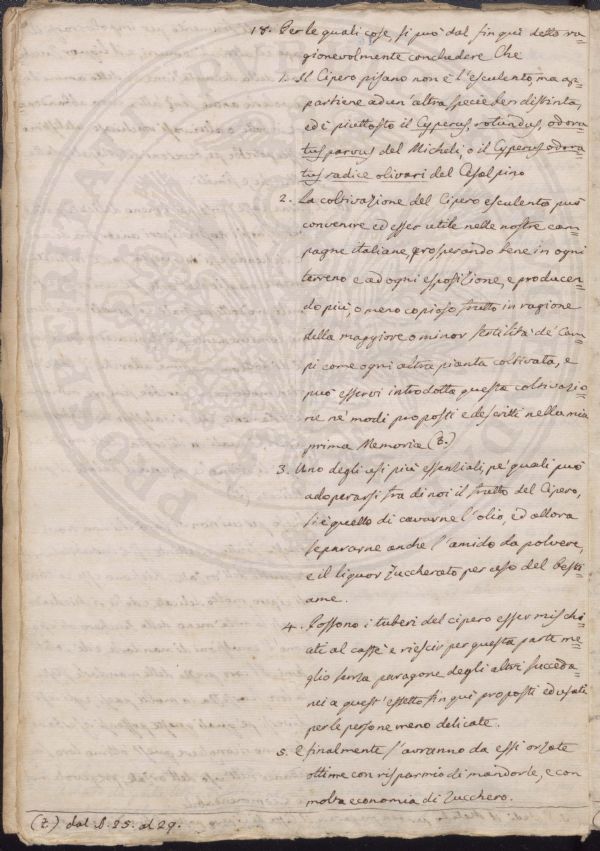 18. Per le quali cose, si può dal fin quì detto ra=
gionevolmente concludere Che
1. Il Cipero pisano non è l'esculento, ma ap=
partiene ad un'altra specie ben distinta,
ed è piuttosto il Cyperus, rotundus, odora=
tus parvus del Micheli, o il Cyperus odora=
tus radice olivari del Cesalpino
2. La coltivazione del Cipero esculento può
convenire ed esser utile nelle nostre cam=
pagne italiane, prosperando bene in ogni
terreno e ad ogni esposizione, e producen=
do più, o meno copioso frutto in ragione
della maggiore o minor fertilità de' Cam=
pi come ogni altra pianta coltivata, e
può esservi introdotta questa coltivazio=
ne ne' modi proposti e descritti nella mia
prima Memoria (Z.)
3. Uno degli usi più essenziali, pe' quali può
adoperarsi tra di noi il frutto del Cipero,
si è quello di cavarne l'olio, ed allora
separarne anche l'amido da polvere,
e il liquor Zuccherato per uso del besti=
ame.
4. Possono i tuberi del cipero esser mischi=
ati al caffè e riescir per questa parte me=
glio senza paragone degli altri succeda=
nei a quest'effetto fin quì proposti ed usati
per le persone meno delicate.
5. E finalmente s'avranno da essi orzate
ottime con risparmio di mandorle, e con
molta economia di Zucchero.
(Z) dal §. 25. al 29.
PRINCIPATV